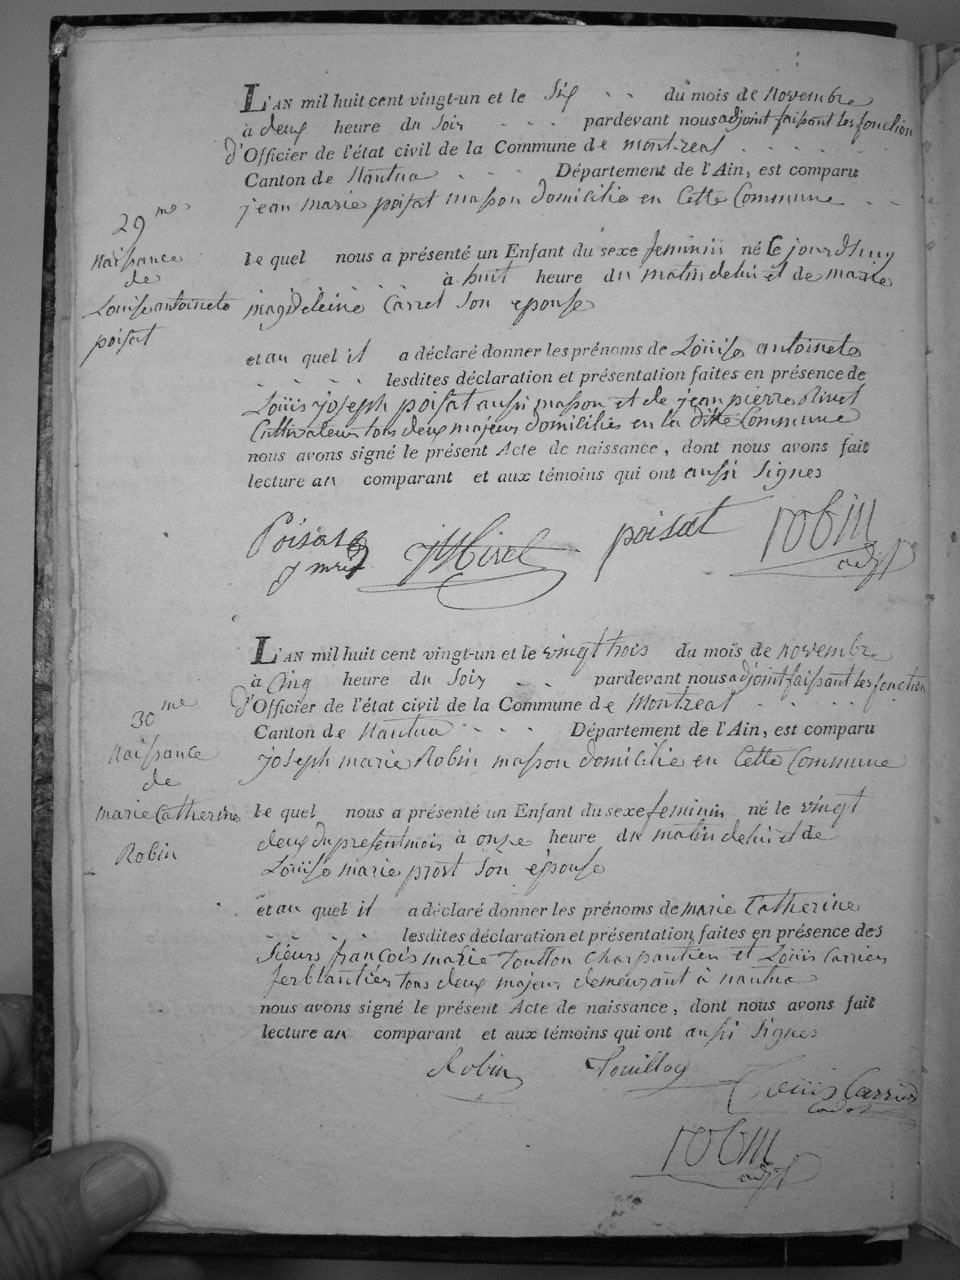 L'AN mil huit cent vingt-un et le Six . . du mois de novembre
à deux heure du Soir . . . pardevant nous adjoint faisant les fonction
d'Officier de l'état civil de la Commune de montreal . . . . .
Canton de Nantua . . . Département de l'Ain, est comparu
jean marie poisat masson domicilié en Cette Commune . .
29 me
naissance
de
Louise antoinete
poisat
le quel nous a présenté un Enfant du sexe feminin né le jourdhuy
à huit heure du matin de lui et de marie
magdeleine Carret Son epouse
et au quel il a déclaré donner les prénoms de Louise antoinete
. . . . lesdites déclaration et présentation faites en présence de
Louis joseph poisat aussi masson et de jean pierre
Cultivateur tous deux majeurs domiciliés en la ditte Commune
nous avons signé le présent Acte de naissance, dont nous avons fait
lecture au comparant et aux témoins qui ont aussi Signes
Poisat
poisat
robin
adjt
L'AN mil huit cent vingt-un et le vingt trois du mois de novembre
à Cinq heure du Soir . . pardevant nous adjoint faissant les fonction
d'Officier de l'état civil de la Commune de Montreal . . . . .
Canton de Nantua . . . Département de l'Ain, est comparu
joseph marie Robin masson domicilié en Cette Commune
30 me
Naissance
de
marie Catherine
Robin
le quel nous a présenté un Enfant du sexe feminin né le vingt
deux du present mois à onze heure du matin de lui et de
Louise marie prost Son épouse
et au quel il a déclaré donner les prénoms de marie Catherine
. . . lesdites déclaration et présentation faites en présence des
Sieurs françois marie Charpantier et Louis Carrier
ferblantier tous deux majeur demeurant à nantua
nous avons signé le présent Acte de naissance, dont nous avons fait
lecture au comparant et aux témoins qui ont aussi Signes
Robin
Louis Carrier
robin
adjt